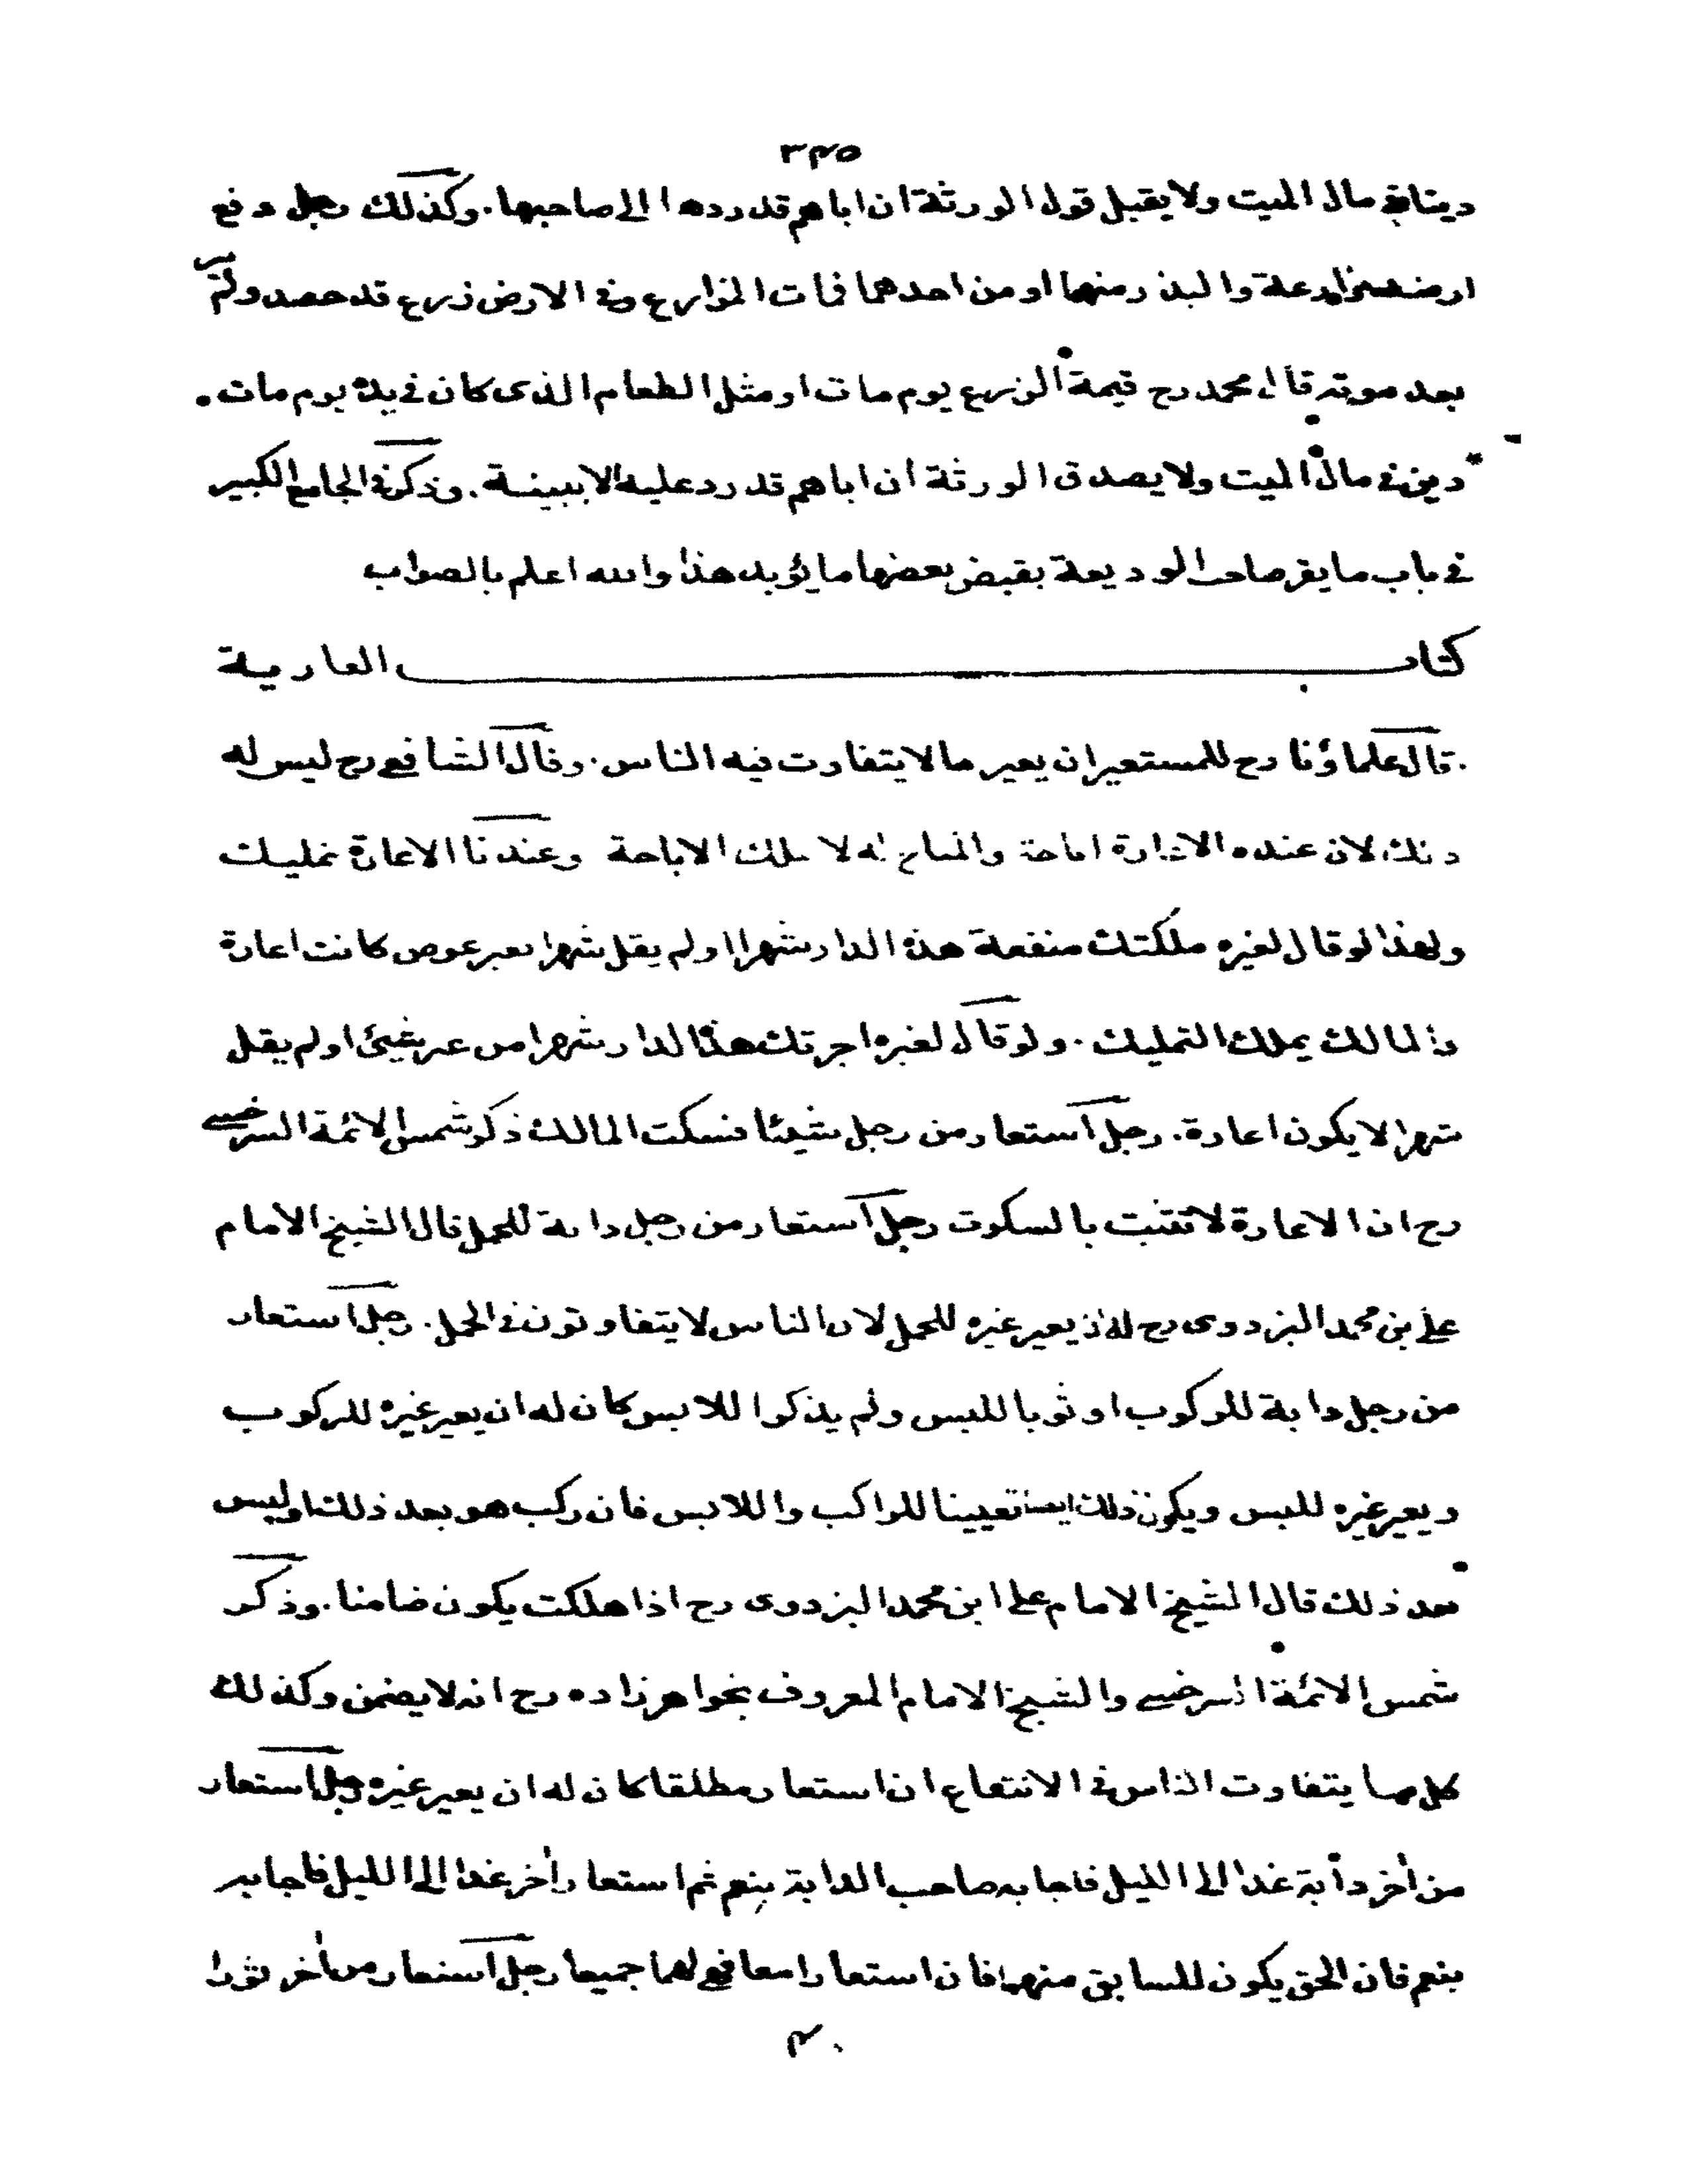 ٣٤٥
دينا في مال الميت ولا يقبل قول الورثة ان اباهم قد ردها الى صاحبها . وكذلك رجل دفع
ارضه مزارعة والبذر منهما او من احدهما فمات المزارع وفي الارض زرع قد حصد ولم
بعد موته قال محمد رح قيمة الزرع يوم مات او مثل الطعام الذى كان في يده يوم مات .
دين في مال الميت ولا يصدق الورثة ان اباهم قد رد عليه الا ببينة . وذكر في الجامع الكبير
في باب ما يقر صاحب الوديعة بقبض بعضها ما يؤيد هذا والله اعلم بالصواب
كتاب العارية
. قال علماؤنا رح للمستعير ان يعير ما لا يتفاوت فيه الناس . وقال الشافعي رح ليس له
ذلك لان عنده الاعارة اباحة والمباح له لا يملك الاباحة وعندنا الاعارة تمليك
ولهذا لو قال لغيره ملكتك منفعة هذه الدار شهرا او لم يقل شهرا بغير عوض كانت اعارة
والمالك يملك التمليك . ولو قال لغيره اجرتك هذا الدار شهرا من غير شيئ او لم يقل
شهرا لا يكون اعارة . رجل استعار من رجل شيئا فسكت المالك ذكر شمس الائمة السرخسي
رح ان الاعارة لا تثبت بالسكوت رجل استعار من رجل دابة للحمل قال الشيخ الامام
علي بن محمد البزدوى رح له ان يعير غيره للحمل لان الناس لا يتفاوتون في الحمل . رجل استعار
من رجل دابة للركوب او ثوبا للبس ولم يذكر اللابس كان له ان يعير غيره للركوب
ويعير غيره للبس ويكون ذلك ايضا تعيينا للراكب واللابس فان ركب هو بعد ذلك او لبس
بعد ذلك قال الشيخ الامام علي ابن محمد البزدوى رح اذا هلكت يكون ضامنا . وذكر
شمس الائمة السرخسي والشيخ الامام المعروف بخواهرزاده رح انه لا يضمن وكذلك
كل ما يتفاوت الناس في الانتفاع ان استعار مطلقا كان له ان يعير غيره رجل استعار
من أخر دابة غدا الى الليل فاجابه صاحب الدابة بنعم ثم استعار أخر غدا الى الليل فاجابه
بنعم فان الحق يكون للسابق منهما فان استعارا معا فهي لهما جميعا رجل استعار من أخر ثورا